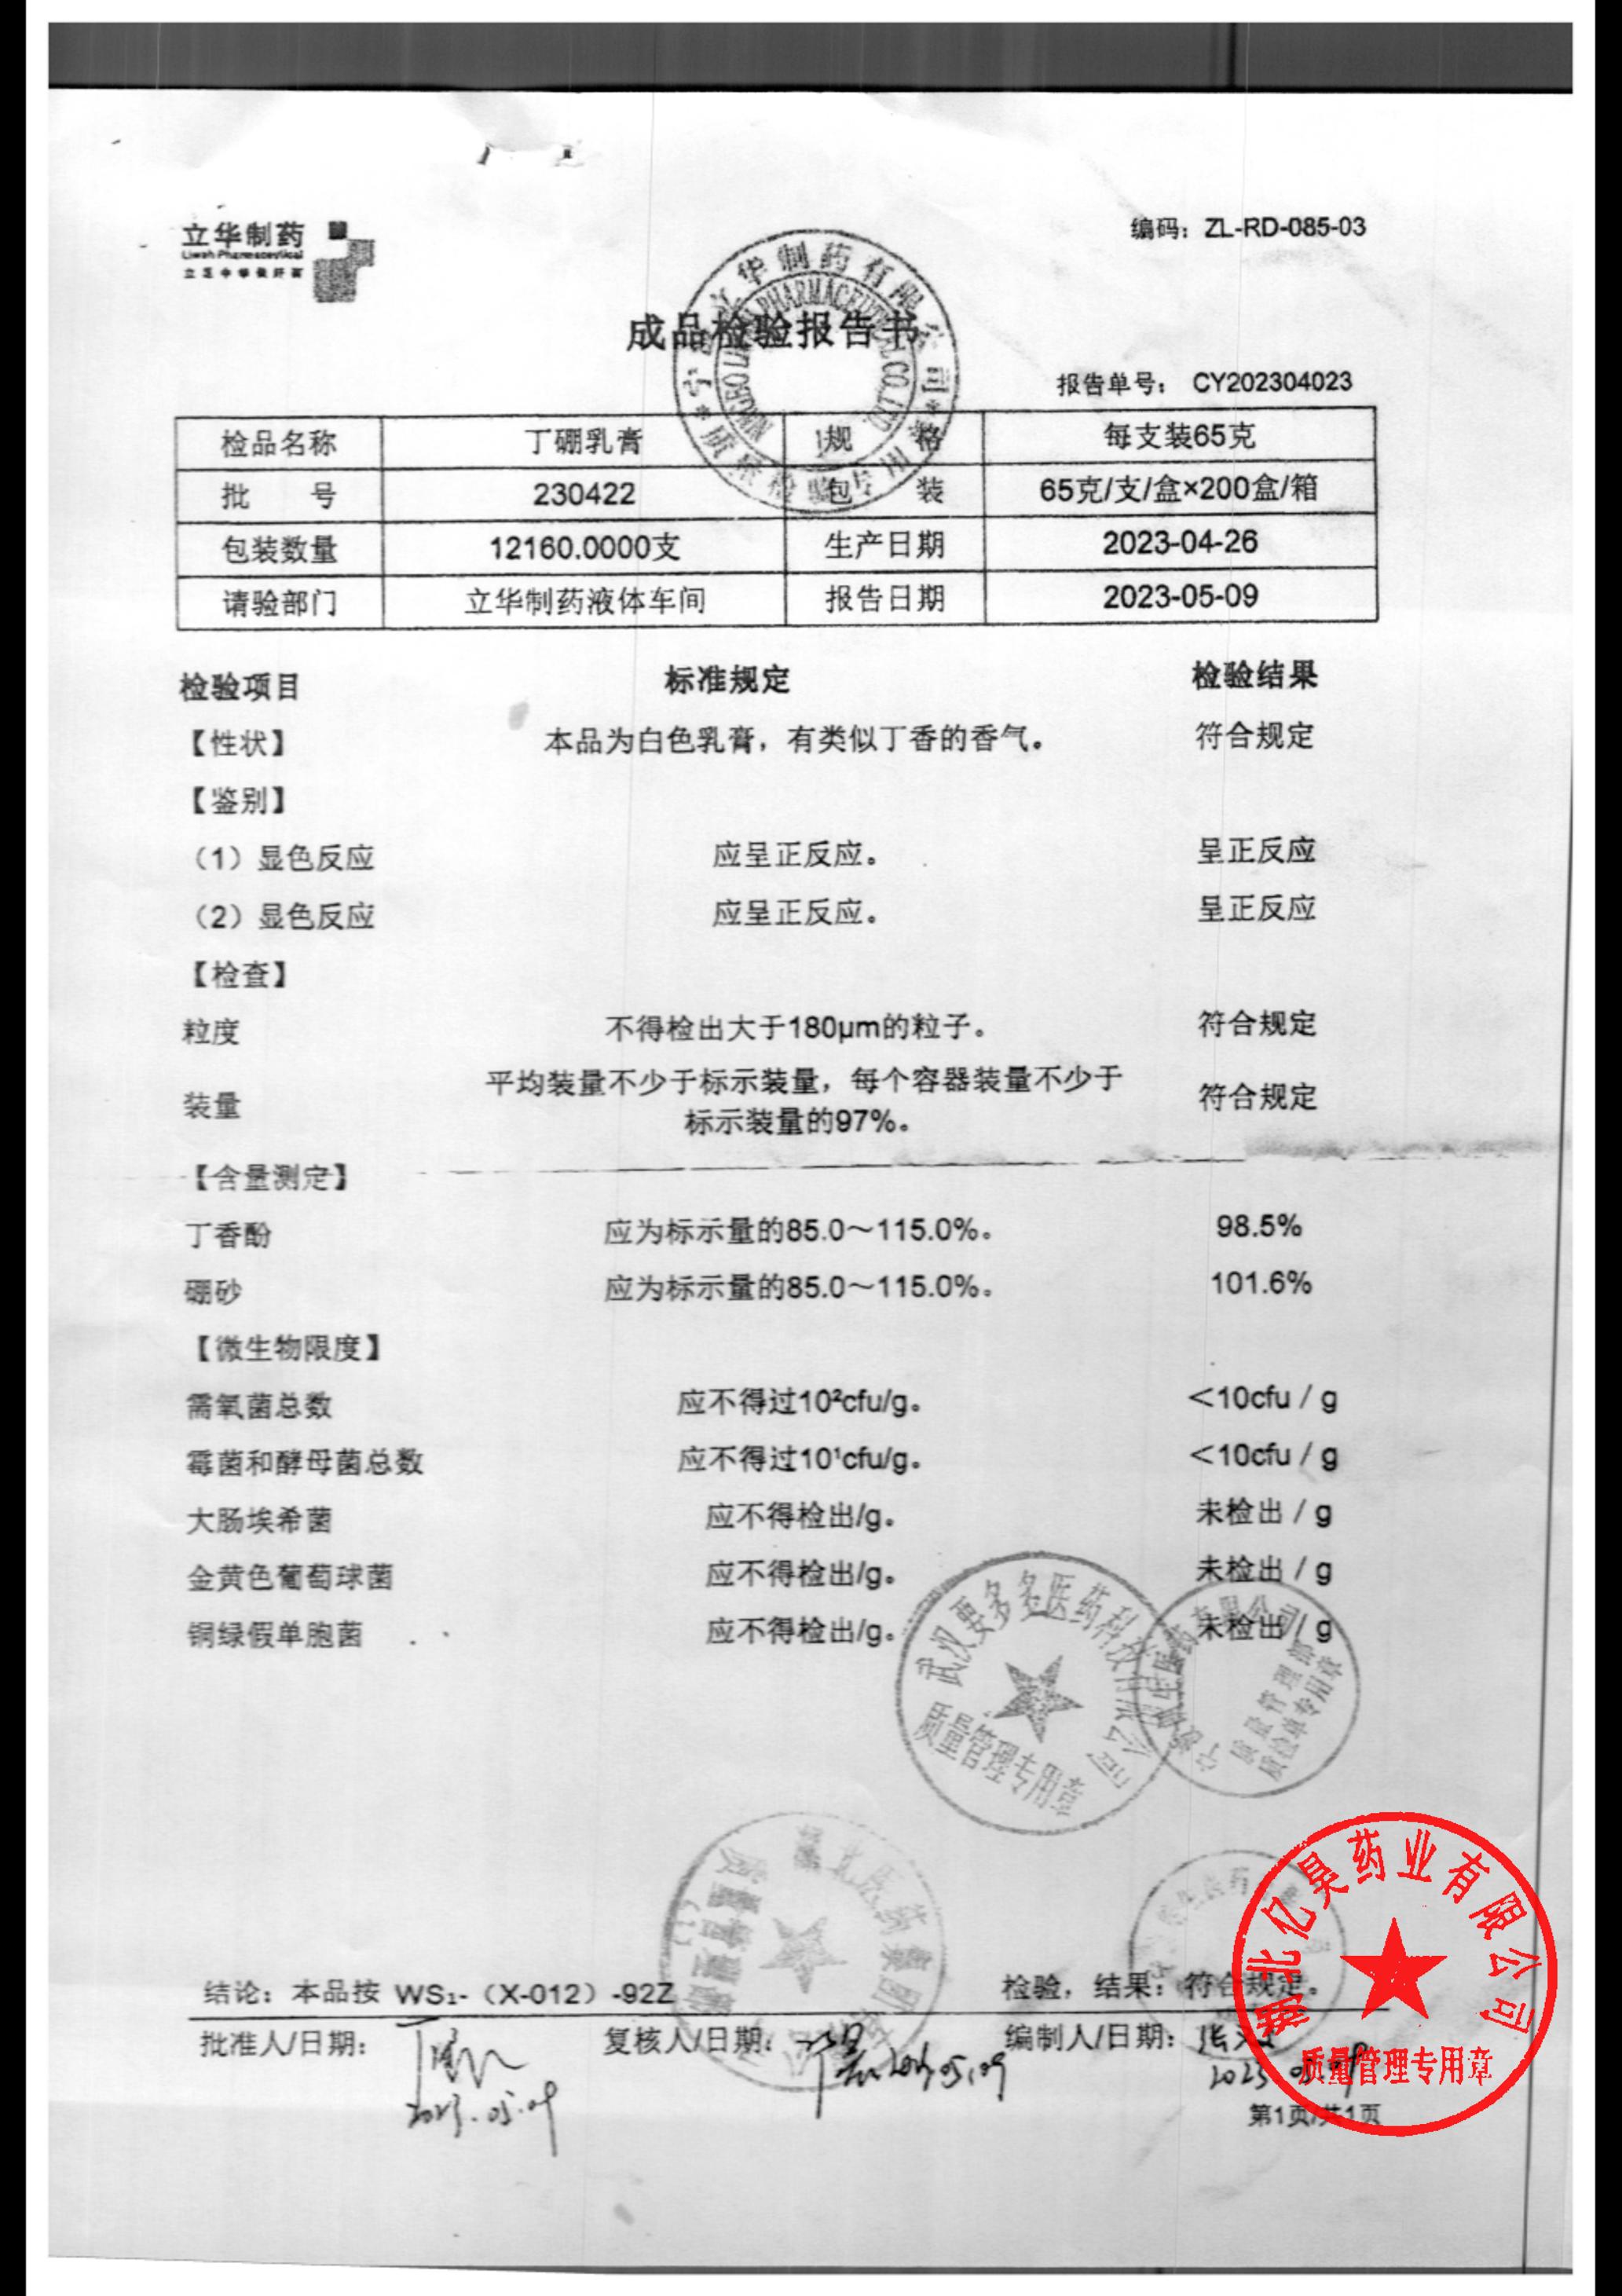 立华制药
Liwah Pharmaceutical
立足中华做好药
编码：ZL-RD-085-03
宁波立华制药有限公司
NINGBO LIWAH PHARMACEUTICAL CO.,LTD.
质量检验专用章
成品检验报告书
报告单号： CY202304023
检品名称 丁硼乳膏 规 格 每支装65克
批 号 230422 包 装 65克/支/盒×200盒/箱
包装数量 12160.0000支 生产日期 2023-04-26
请验部门 立华制药液体车间 报告日期 2023-05-09
检验项目 标准规定 检验结果
【性状】 本品为白色乳膏，有类似丁香的香气。 符合规定
【鉴别】
（1）显色反应 应呈正反应。 呈正反应
（2）显色反应 应呈正反应。 呈正反应
【检查】
粒度 不得检出大于180μm的粒子。 符合规定
装量 平均装量不少于标示装量，每个容器装量不少于 符合规定
标示装量的97%。
【含量测定】
丁香酚 应为标示量的85.0～115.0%。 98.5%
硼砂 应为标示量的85.0～115.0%。 101.6%
【微生物限度】
需氧菌总数 应不得过10²cfu/g。 ＜10cfu / g
霉菌和酵母菌总数 应不得过10¹cfu/g。 ＜10cfu / g
大肠埃希菌 应不得检出/g。 未检出 / g
金黄色葡萄球菌 应不得检出/g。 未检出 / g
铜绿假单胞菌 应不得检出/g。 未检出 / g
武汉要多多医药科技有限公司
质量管理专用章
有限公司
质量管理部
质检单专用章
湖北亿昊药业有限公司
质量管理专用章
结论：本品按 WS₁-（X-012）-92Z 检验，结果：符合规定。
批准人/日期： 复核人/日期： 编制人/日期：
2023.05.09 2023.05.09 2023.05.09
第1页/共1页